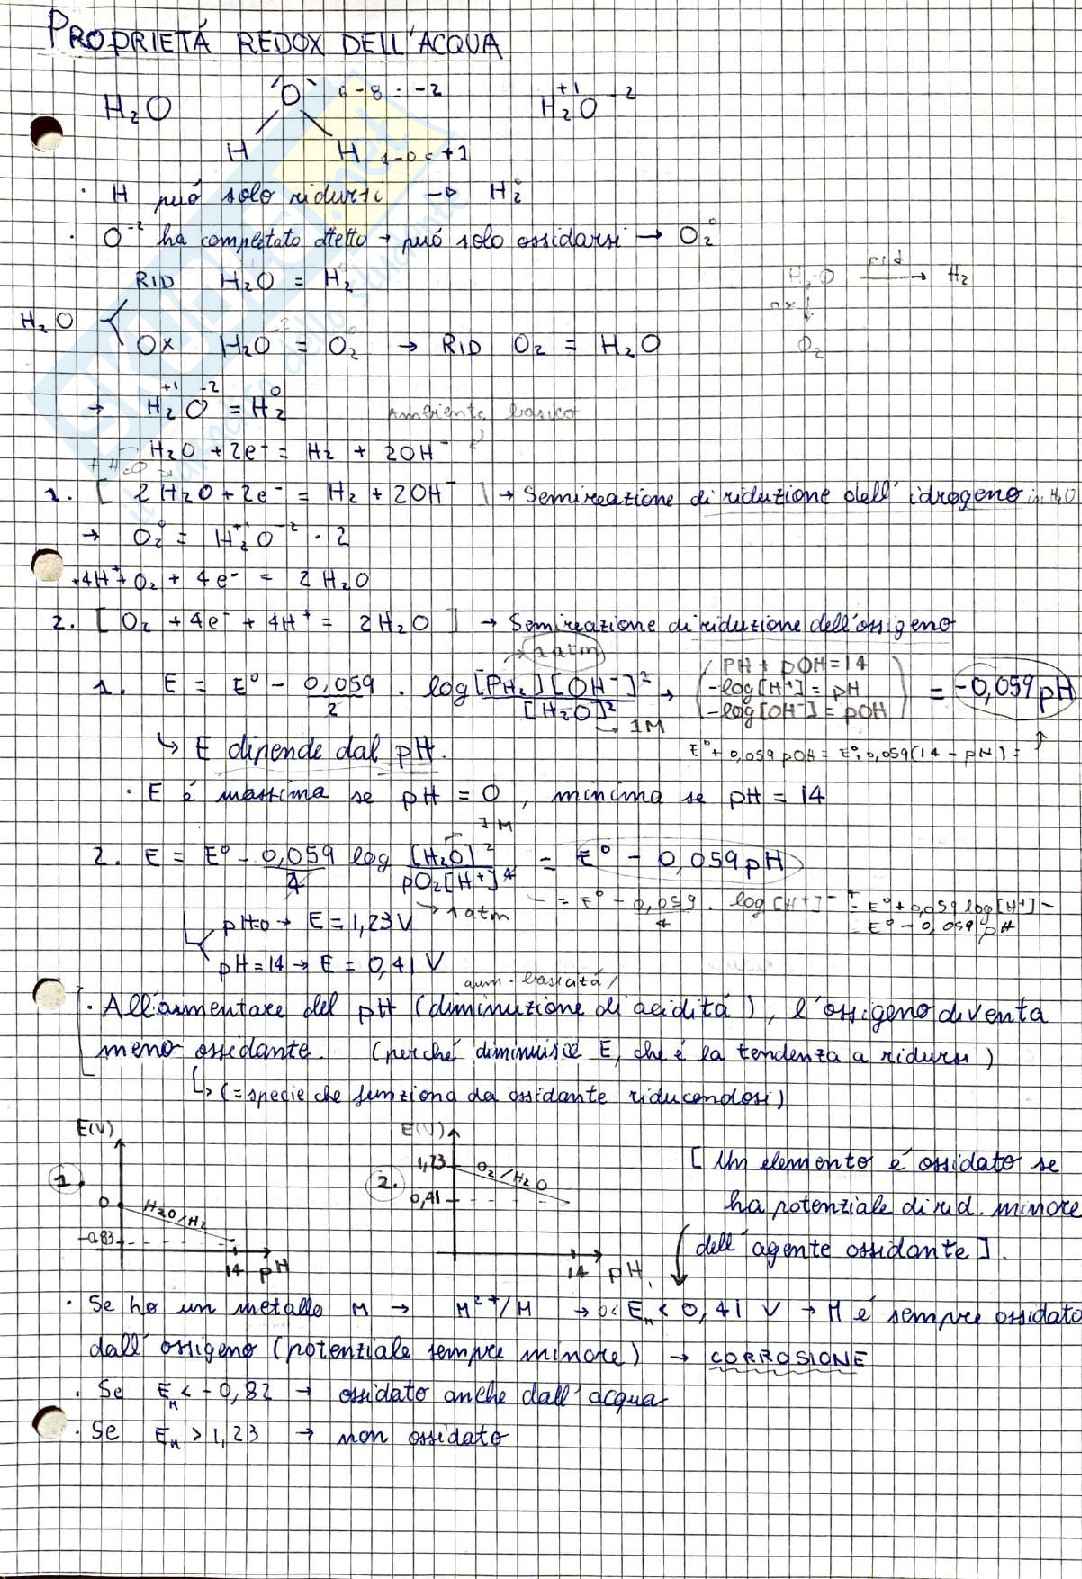 PROPRIETÁ REDOX DELL'ACQUA
H₂O O 6-8 = -2 H₂⁺¹O⁻²
H H 1-0 = +1
· H puó solo ridursi → H₂⁰
· O⁻² ha completato ottetto → puó solo ossidarsi → O₂⁰
RID H₂O = H₂
H₂O rid → H₂
H₂O
ox ↓
OX H₂O = O₂ → RID O₂ = H₂O
O₂
→ H₂⁺¹O⁻² = H₂⁰ Ambiente basico
H₂O + 2e⁻ = H₂ + 2OH⁻
+ H₂O →
1. [ 2H₂O + 2e⁻ = H₂ + 2OH⁻ ] → Semireazione di riduzione dell'idrogeno in H₂O
→ O₂⁰ = H₂⁺¹O⁻² · 2
+4H⁺ + O₂ + 4e⁻ = 2H₂O
2. [ O₂ + 4e⁻ + 4H⁺ = 2H₂O ] → Semireazione di riduzione dell'ossigeno
→ 1 atm
1. E = E⁰ - 0,059/2 · log [PH₂][OH⁻]²/[H₂O]² → ( PH + pOH = 14
-log[H⁺] = pH
-log[OH⁻] = pOH ) = -0,059 pH
→ 1M
↳ E dipende dal pH. E⁰ + 0,059 pOH = E⁰ + 0,059(14 - pH) =
· E é massima se pH = 0, minima se pH = 14
1M
2. E = E⁰ - 0,059/4 log [H₂O]²/pO₂[H⁺]⁴ = E⁰ - 0,059 pH
→ 1 atm = E⁰ - 0,059/4 · log[H⁺]⁻⁴ = E⁰ + 0,059 log[H⁺] =
= E⁰ - 0,059 pH
pH=0 → E = 1,23 V
pH = 14 → E = 0,41 V
aum. basicitá
[ · All'aumentare del pH (diminuzione di aciditá), l'ossigeno diventa
meno ossidante. (perché diminuisce E, che é la tendenza a ridursi)
↳ (= specie che funziona da ossidante riducendosi)
E(V) E(V)
1. 0 H₂O/H₂ -0,83 14 pH
2. 1,23 O₂/H₂O 0,41 14 pH
[ Un elemento é ossidato se
ha potenziale di rid. minore
dell'agente ossidante ].
· Se ho un metallo M → M²⁺/M → 0 < Eₘ < 0,41 V → M é sempre ossidato
dall'ossigeno (potenziale sempre minore) → CORROSIONE
· Se Eₘ < -0,82 → ossidato anche dall'acqua
· Se Eₘ > 1,23 → non ossidato